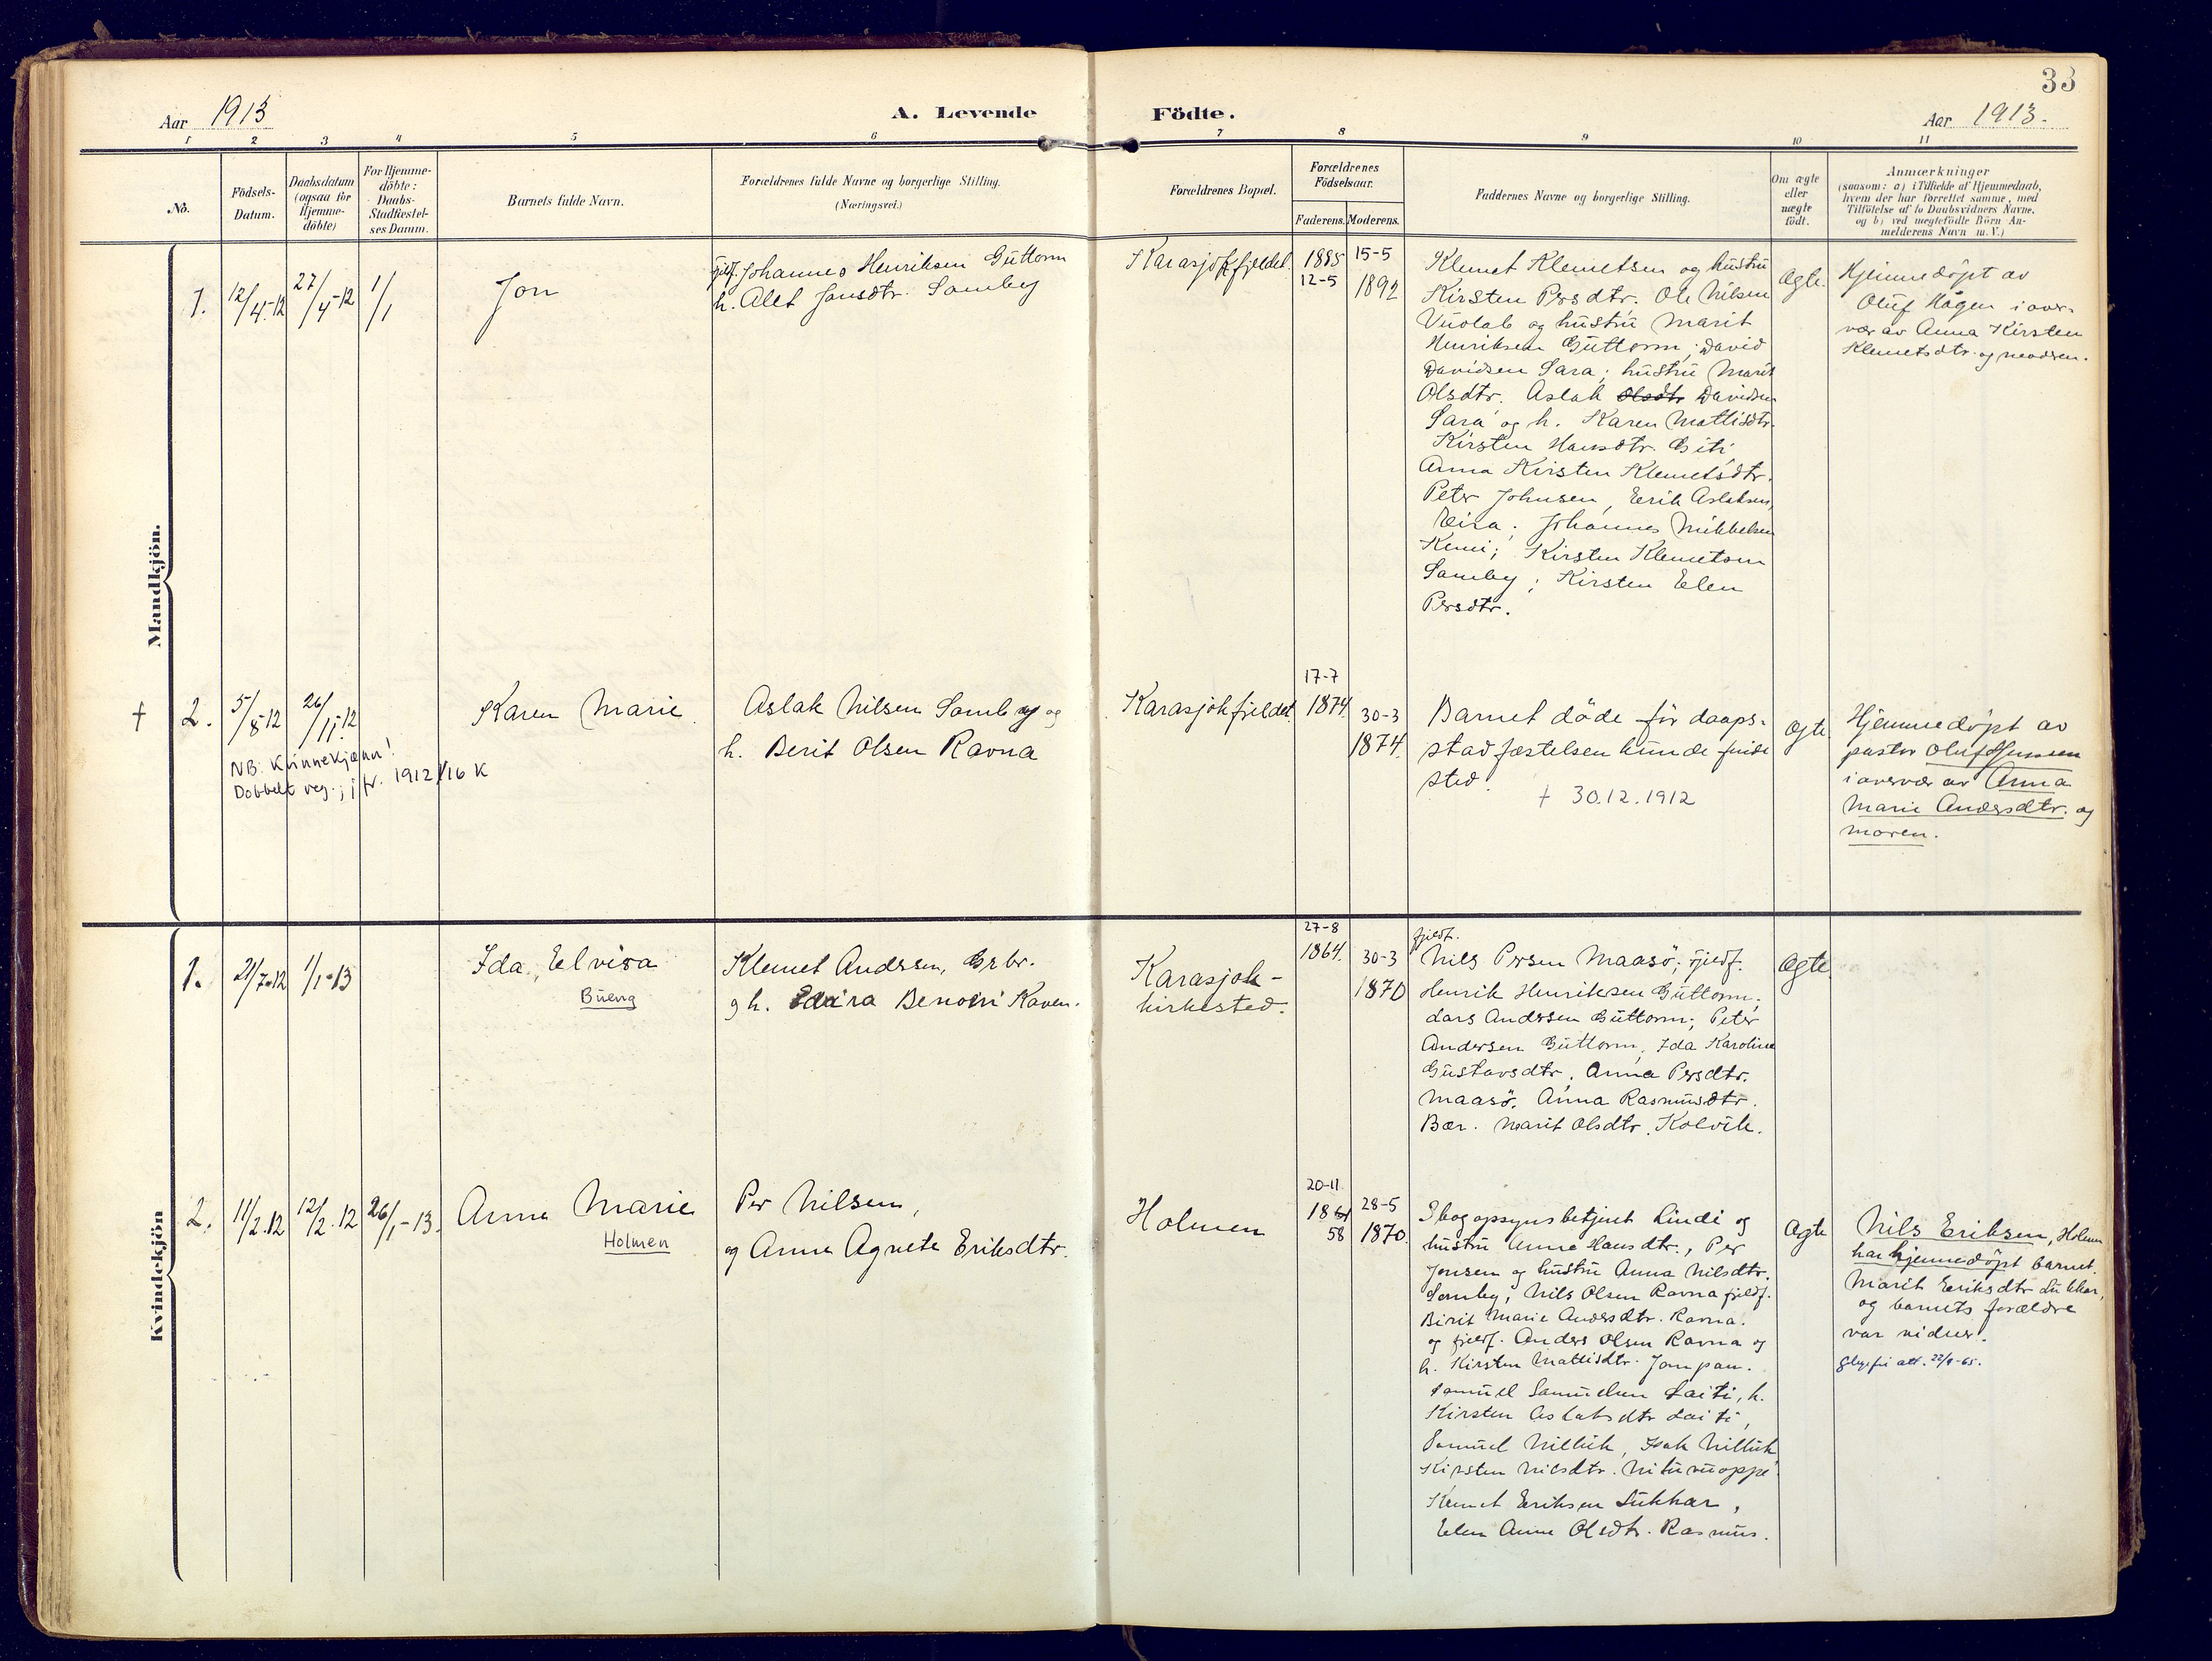 33
Aar 1913
A. Levende
Födte.
Aar 1913.
1 2 3 4 5 6 7 8 9 10 11
No.
Födsels-
Datum.
Daabsdatum
(ogsaa for
Hjemme-
döbte)
For Hjemme-
döbte:
Daabs-
Stadfæstel-
ses Datum.
Barnets fulde Navn.
Forældrenes fulde Navne og borgerlige Stilling.
(Næringsvei.)
Forældrenes Bopæl.
Forældrenes
Födselsaar.
Faderens. Moderens.
Faddernes Navne og borgerlige Stilling.
Om ægte
eller
uægte
födt.
Anmærkninger
(saasom: a) i Tilfælde af Hjemmedaab,
hvem der har forrettet samme, med
Tilföielse af to Daabsvidners Navne,
og b) ved uegtefödte Börn An-
melderens Navn m.V.)
Mandkjön.
1.
12/4-12
27/4-12
1/1
Jon
fjeldf. Johannes Henriksen Guttorm
h. Alet Jonsdtr. Somby
Karasjokfjeldet.
1885
12-5
15-5
1892
Klemet Klemetsen og hustru
Kirsten Persdtr. Ole Nilsen
Vuolab og hustru Marit
Henriksen Guttorm; David
Davidsen Sara; hustru Marit
Olsdtr. Aslak Olsdtr Davidsen
Sara og h. Karen Mattisdtr.
Kirsten Hansdtr. Biti
Anna Kirsten Klemetsdtr.
Peter Johnsen, Erik Aslaksen
Eira; Johannes Mikkelsen
Kemi; Kirsten Klemetsen
Somby; Kirsten Elen
Persdtr.
Ægte.
Hjemmedöpt av
Oluf Hagen i over-
vær av Anna Kirsten
Klemetsdtr. og moderen.
†
2.
5/8-12
26/11-12
NB: Kvinnekjønn!
Dobbelt reg.; jfr. 1912/16 K
Karen Marie
Aslak Nilsen Somby og
h. Berit Olsen Ravna
Karasjokfjeldet
17-7
1874
30-3
1874.
Barnet döde för daaps-
stadfæstelsen kunde finde
sted.
† 30.12.1912
Ægte
Hjemmedöpt av
pastor Oluf
i overvær av Anna
Marie Andersdtr. og
moren.
Kvindekjön
1.
21/7-12
1/1-13
Ida, Elvira
Bueng
Klemet Andersen, Grbr.
og h. Edvira Benoni Kaven.
Karasjok-
kirkested.
27-8
1864.
30-3
1870
fjeldf.
Nils Persen Maasö; fjeldf.
Henrik Henriksen Guttorm;
Lars Andersen Guttorm; Peter
Andersen Guttorm, Ida Karoline
Gustavsdtr, Anna Persdtr.
Maasö. Anna Rasmusdtr.
Bær. Marit Olsdtr. Kolvik.
Ægte
2.
11/2.12
12/2.12
26/1-13.
Anna Marie
Holmen
Per Nilsen,
og Anna Agnete Eriksdtr.
Holmen
20-11
1861
58
28-5
1870.
Skogopsynsbetjent Lindi og
hustru Anne Hansdtr., Per
Jonsen og hustru Anna Nilsdtr.
Somby, Nils Olsen Ravna fjeldf.
Birit Marie Andersdtr. Ravna.
og fjeldf. Anders Olsen Ravna og
h. Kirsten Mattisdtr. Jompan.
Samuel Samuelsen Laiti, h.
Kirsten Aslaksdtr Laiti,
Samuel Nilluk, Isak Nilluk
Kirsten Nilsdtr. Niturvuoppe
Klemet Eriksen Lukkar,
Elen Anne Olsdtr. Rasmus.
Ægte
Nils Eriksen, Holmen
har hjemmedöpt barnet.
Marit Eriksdtr Lukkar,
og barnets forældre
var vidner.
att. 22/9-65.